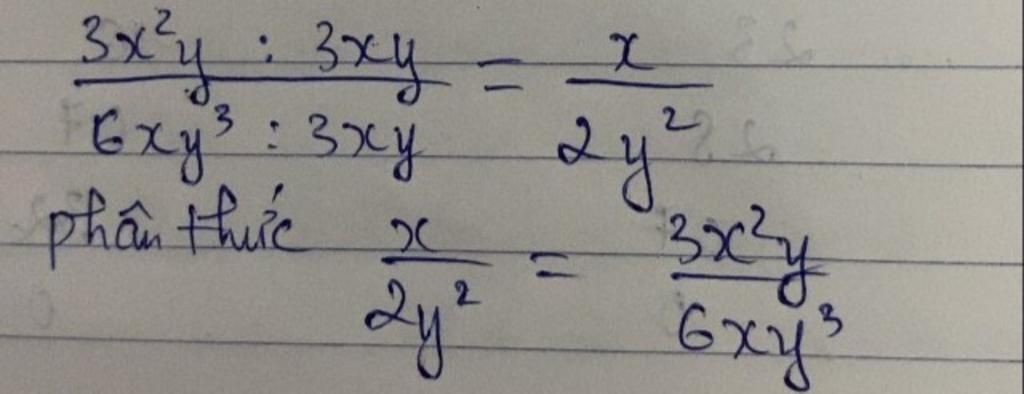 \frac{3x^2y : 3xy}{6xy^3 : 3xy} = \frac{x}{2y^2}
phân thức \frac{x}{2y^2} = \frac{3x^2y}{6xy^3}